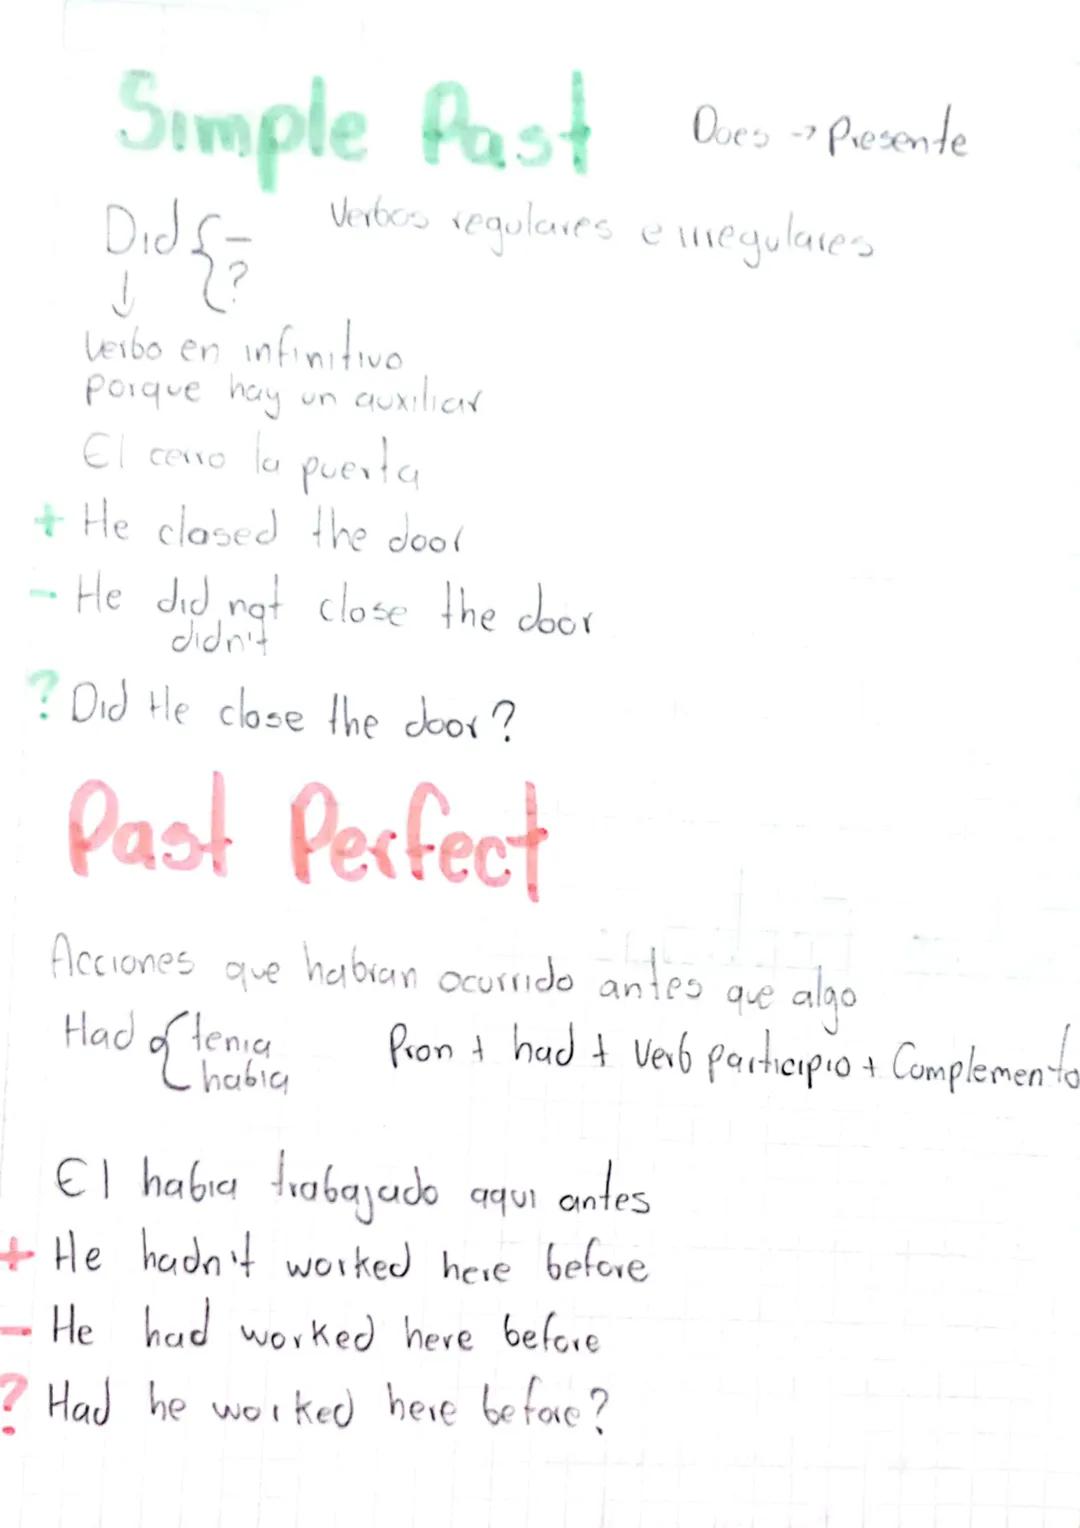 Simple Past
Does → Presente
Did { -
?
↓
Verbos regulares e irregulares
Verbo en infinitivo
porque hay un auxiliar
El cerro la puerta
+ He closed the door
- He did not close the door
didn't
? Did He close the door?
Past Perfect
Acciones que habian ocurrido antes que algo
Had { tenia
habia
Pron + had + Verb participio + Complemento
El habia trabajado aqui antes
+ He hadn't worked here before
- He had worked here before
? Had he worked here before?